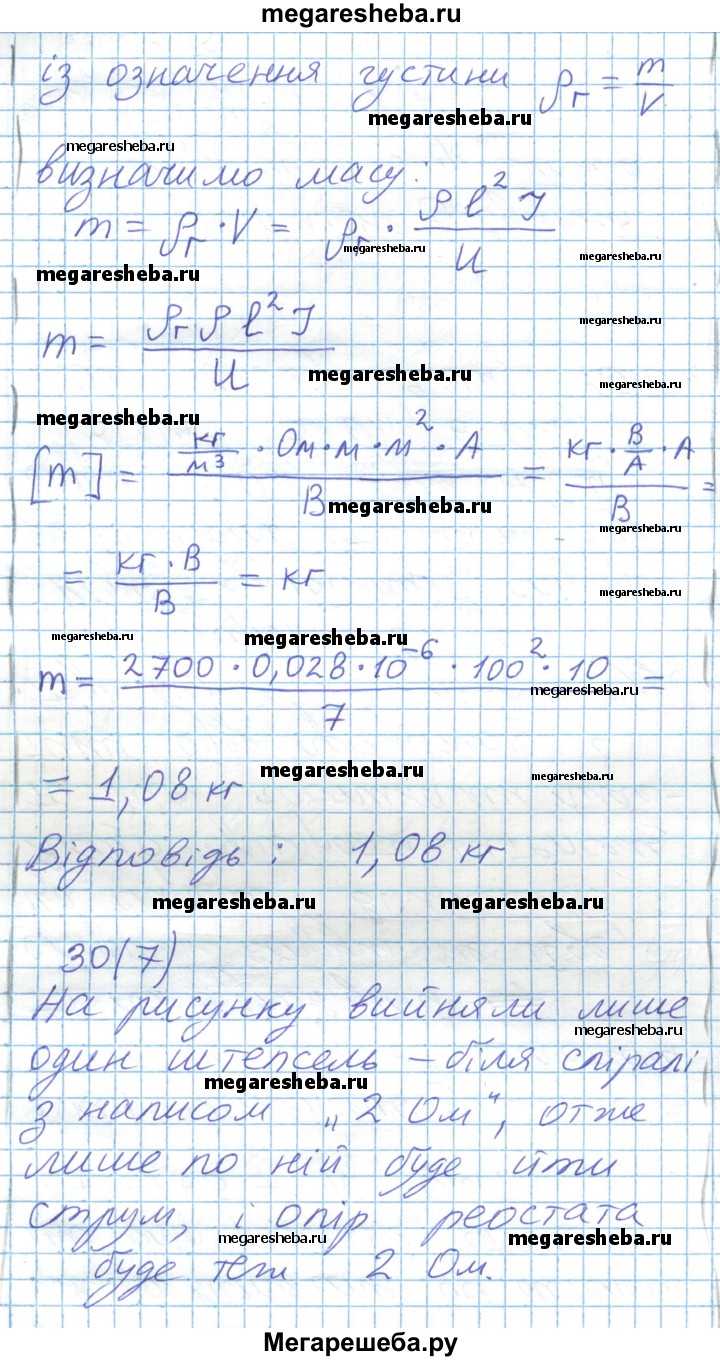 megaresheba.ru
із означення густини ρг = m/V
megaresheba.ru
megaresheba.ru
визначимо масу:
m = ρг · V = ρг · ρ l² I / U
megaresheba.ru
megaresheba.ru
megaresheba.ru
m = ρг ρ l² I / U
megaresheba.ru
megaresheba.ru
megaresheba.ru
megaresheba.ru
[m] = кг/м³ · Ом · м · м² · А / В = кг · В/А · А / В =
megaresheba.ru
megaresheba.ru
= кг · В / В = кг
megaresheba.ru
megaresheba.ru
megaresheba.ru
m = 2700 · 0,028 · 10⁻⁶ · 100² · 10 / 7 =
megaresheba.ru
= 1,08 кг
megaresheba.ru
megaresheba.ru
Відповідь : 1,08 кг
megaresheba.ru
megaresheba.ru
30(7)
На рисунку вийняли лише
megaresheba.ru
один штепсель – біля спіралі
megaresheba.ru
з написом „2 Ом", отже
лише по ній буде йти
струм, і опір реостата
megaresheba.ru
megaresheba.ru
буде теж 2 Ом.
Мегарешеба.ру